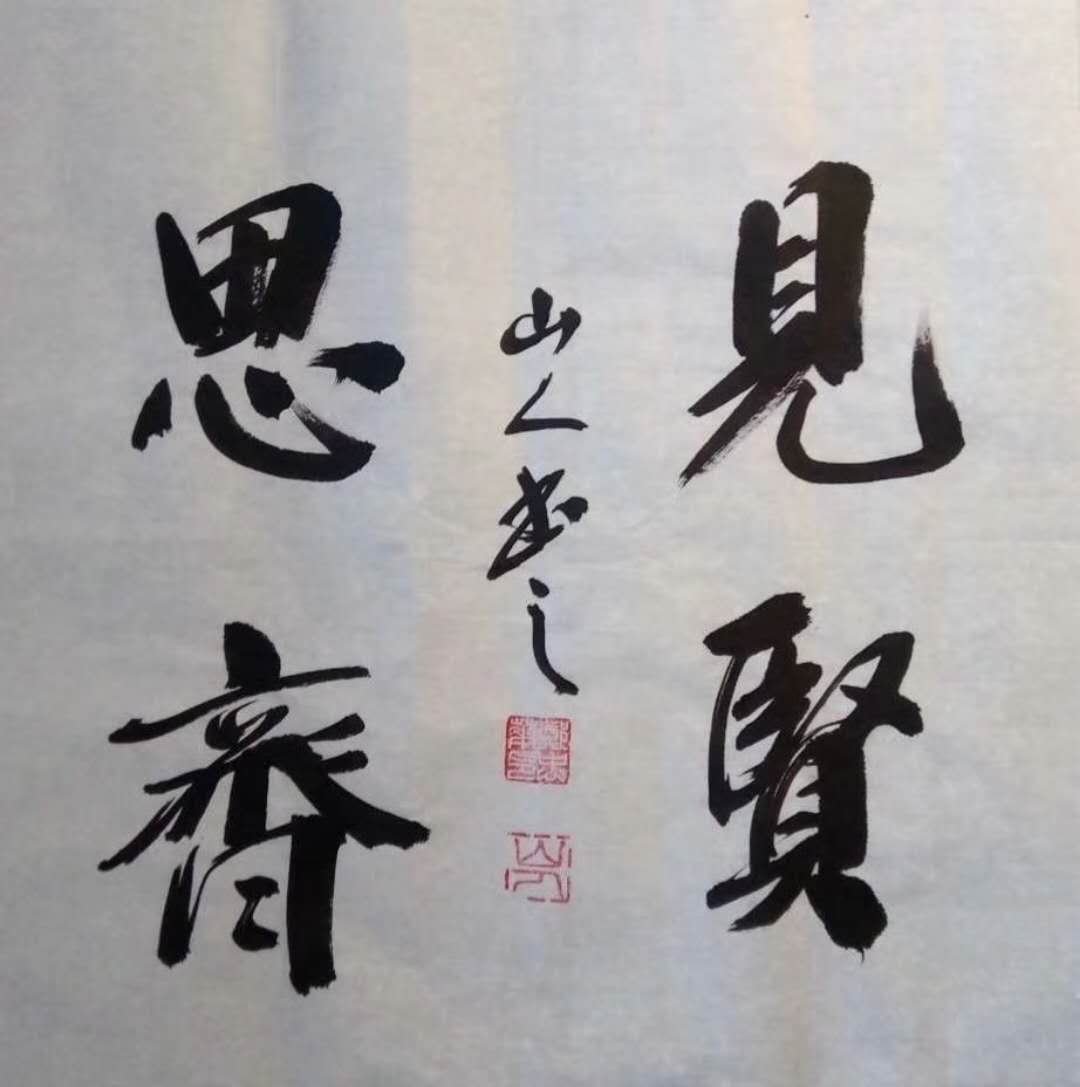 見賢
思齊
山人书之